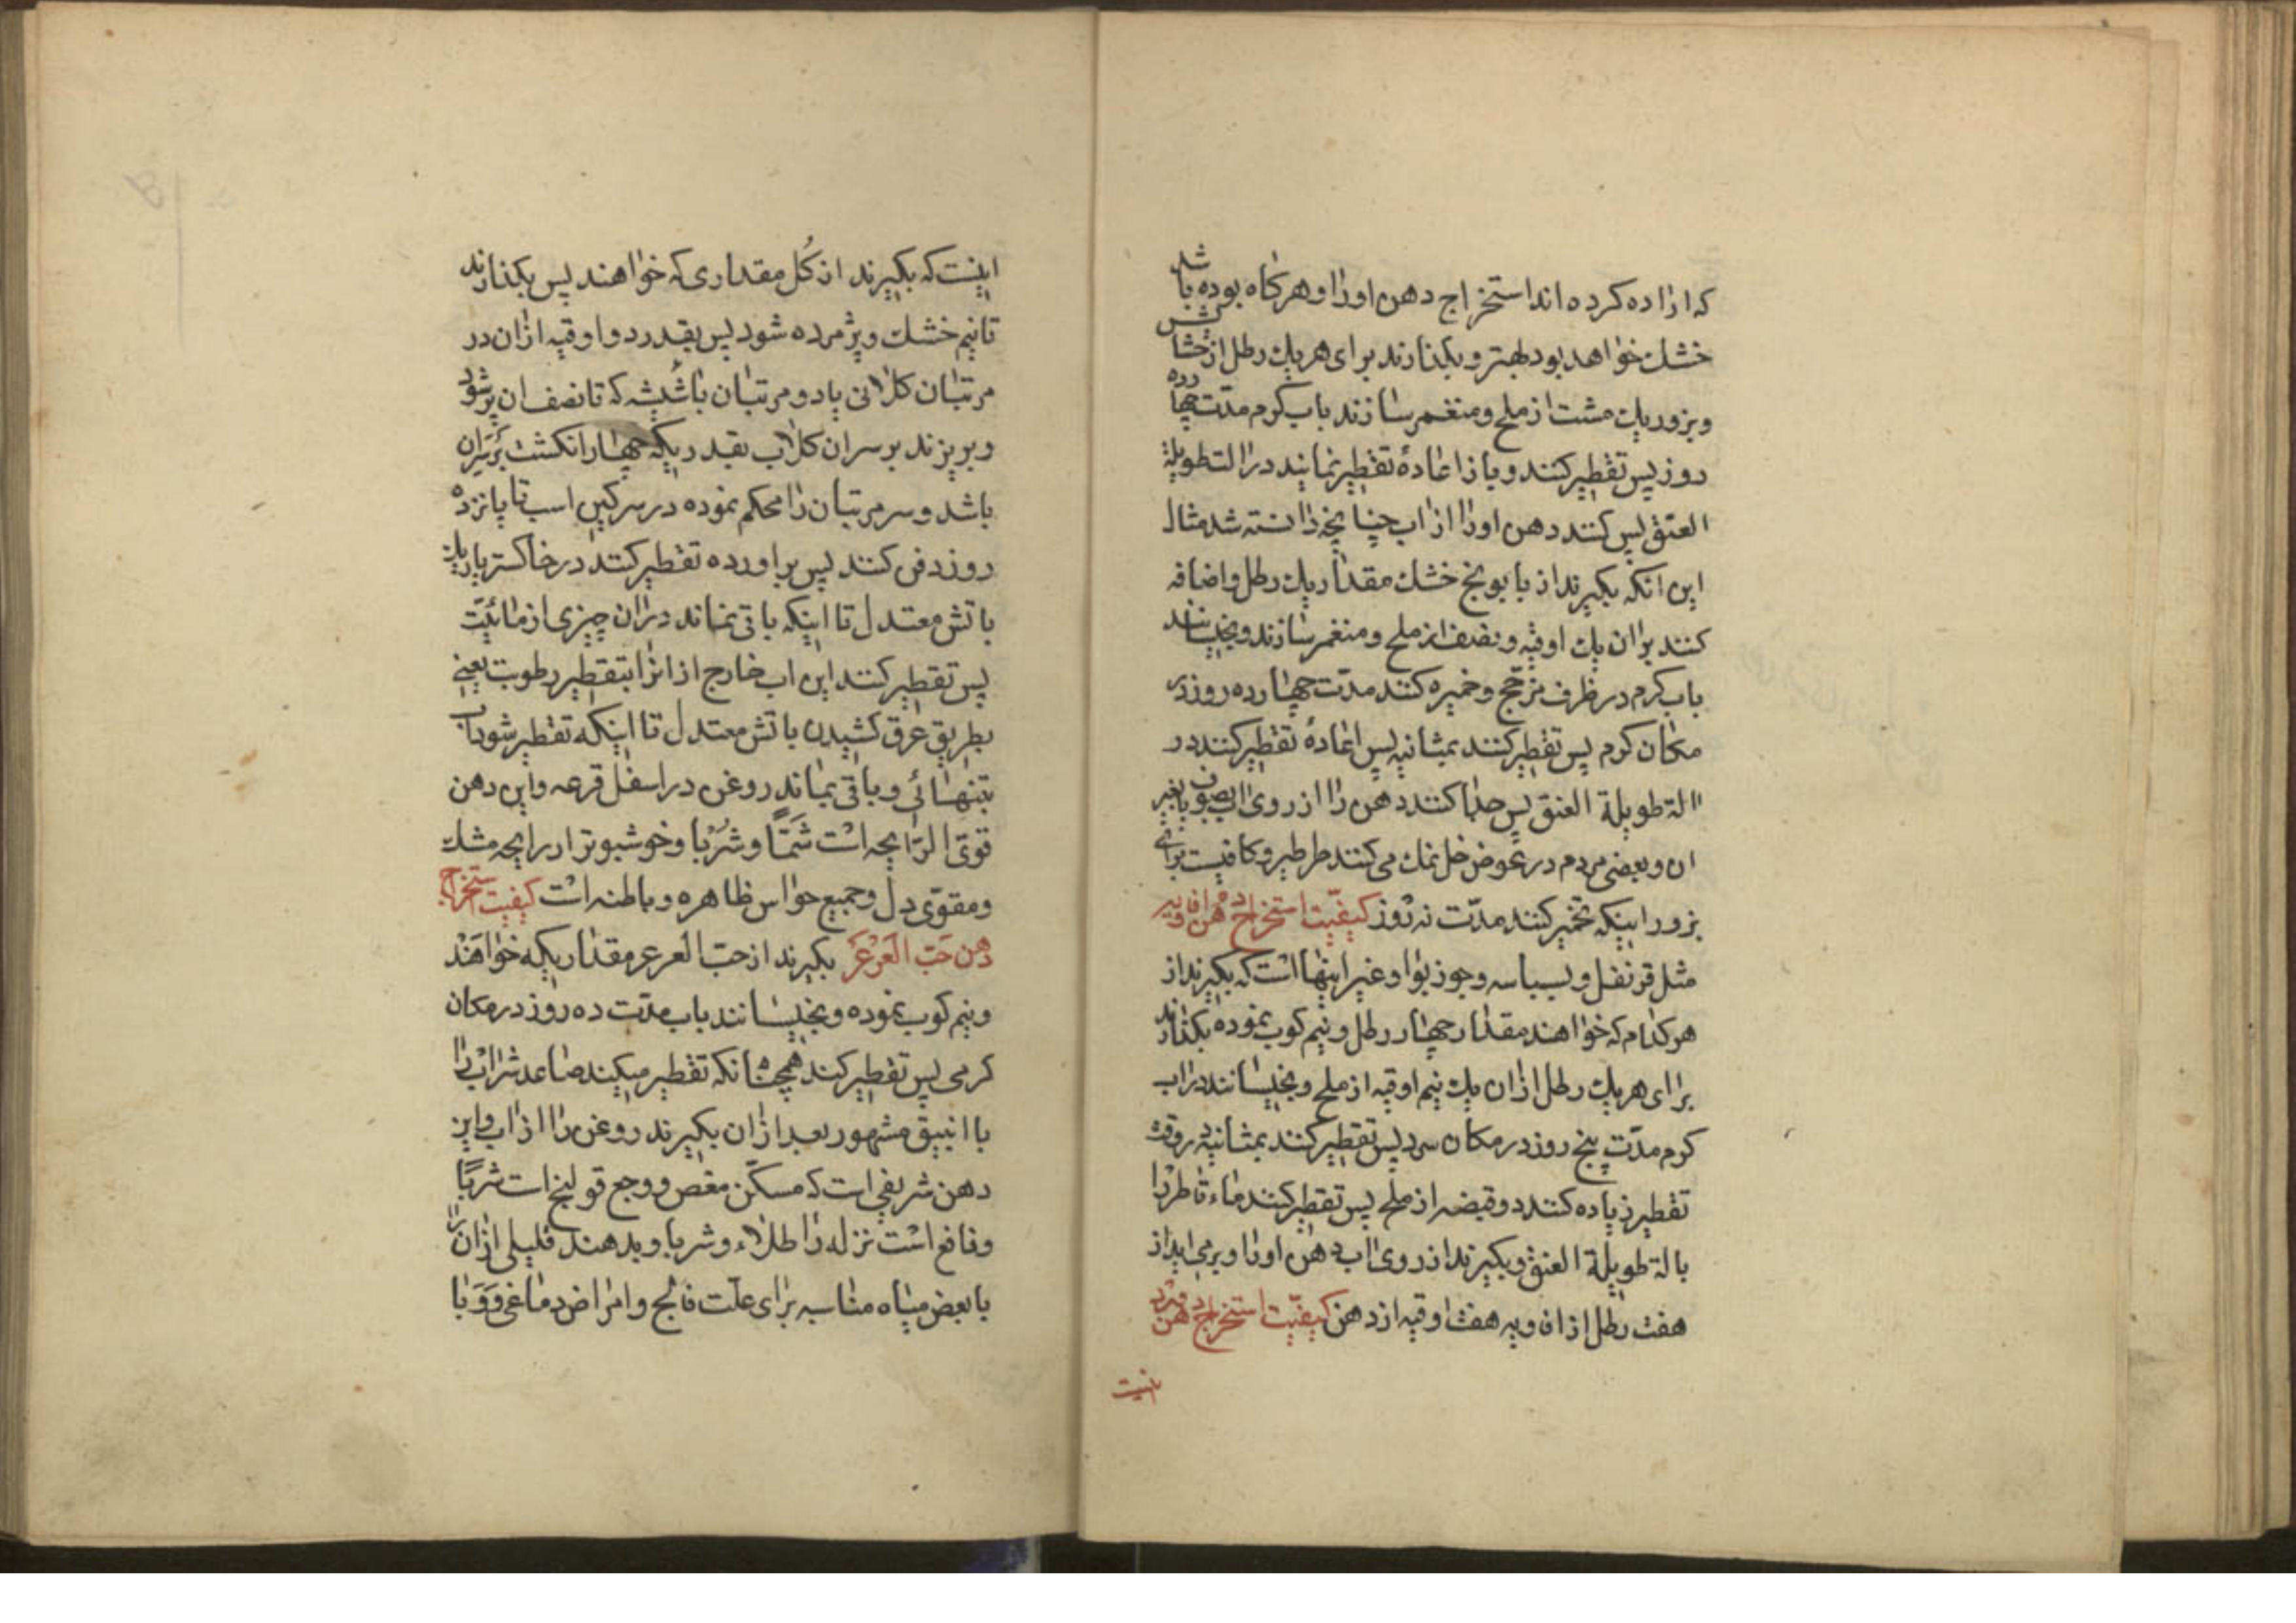 که اراده کرده اند استخراج دهن اورا و هرکاه بوده باشد
خشك خواهد بود بهتر و بکذارند برای هر یك رطل از خشایش
و بزور یك مشت از ملح و منغمر سازند باب کرم مدّت چهارده
روز پس تقطیر کنند و باز اعادهٔ تقطیر نمایند در الت طویلة
العنق پس کنند دهن اورا از اب چنانچه دانسته شد مثال
این انکه بکیرند از بابونج خشك مقدار یك رطل و اضافه
کنند بران یك اوقیه و نصف از ملح و منغمر سازند و بخیسانند
باب کرم در ظرف مزجّج و خمیره کنند مدّت چهارده روز در
مکان کرم پس تقطیر کنند بمثانیه پس اعادهٔ تقطیر کنند در
الة طویلة العنق پس جدا کنند دهن را از روی اب بصوف یا بغیر
ان و بعضی مردم در عوض خل نمك می کنند طرطیر و کافیست برای
بزور اینکه تخمیر کنند مدّت نه روز کیفیّت استخراج دهن افاویه
مثل قرنفل و بسباسه و جوز بوا و غیر اینها است که بکیرند از
هر کدام که خواهند مقدار چهار رطل و نیم کوب نموده بکذارند
برای هر یك رطل ازان یك نیم اوقیه از ملح و بخیسانند در اب
کرم مدّت پنج روز در مکان سرد پس تقطیر کنند بمثانیه در وقت
تقطیر زیاده کنند دو قبضه از ملح پس تقطیر کنند ماء قاطر را
بالة طویلة العنق و بکیرند از روی اب دهن اورا و برمی اید از
هفت رطل از افاویه هفت اوقیه از دهن کیفیّت استخراج دهن ورد
اینست
اینست که بکیرند از کُل مقداری که خواهند پس بکذارند
تا نیم خشك و پژمرده شود پس بقدر دو اوقیه ازان در
مرتبان کلانی یا دو مرتبان یا شیشه که تا نصف ان پر شود
و بریزند بر سر ان کلاب بقدریکه چهار انکشت بر سر ان
باشد و سر مرتبان را محکم نموده در سرکین اسب تا پانزده
روز دفن کنند پس براورده تقطیر کنند در خاکستر یا ریك
باتش معتدل تا اینکه باقی نماند دران چیزی از مائیّت
پس تقطیر کنند این اب خارج از انرا بتقطیر رطوبت یعنے
بطریق عرق کشیدن باتش معتدل تا اینکه تقطیر شود اب
بتنهائی و باقی بماند روغن در اسفل قرعه و این دهن
قویّ الرّایحه است شَمًّا و شُرْبا و خوشبوتر از رایحه مشك
و مقوّی دل و جمیع حواس ظاهره و باطنه است کیفیت استخراج
دهن حَبّ العَرْعَر بکیرند از حبّ العرعر مقداریکه خواهند
و نیم کوب نموده و بخیسانند باب مدّت ده روز در مکان
کرمی پس تقطیر کنند همچنانکه تقطیر میکنند صاعد شراب را
با انبیق مشهور بعد ازان بکیرند روغن را از اب و این
دهن شریفی است که مسکّن مغص و وجع قولنج است شربًا
و نافع است نزله را طلاء و شربا و بدهند قلیلی ازان را
با بعض میاه مناسبه برای علّت فالج و امراض دماغی و وبا